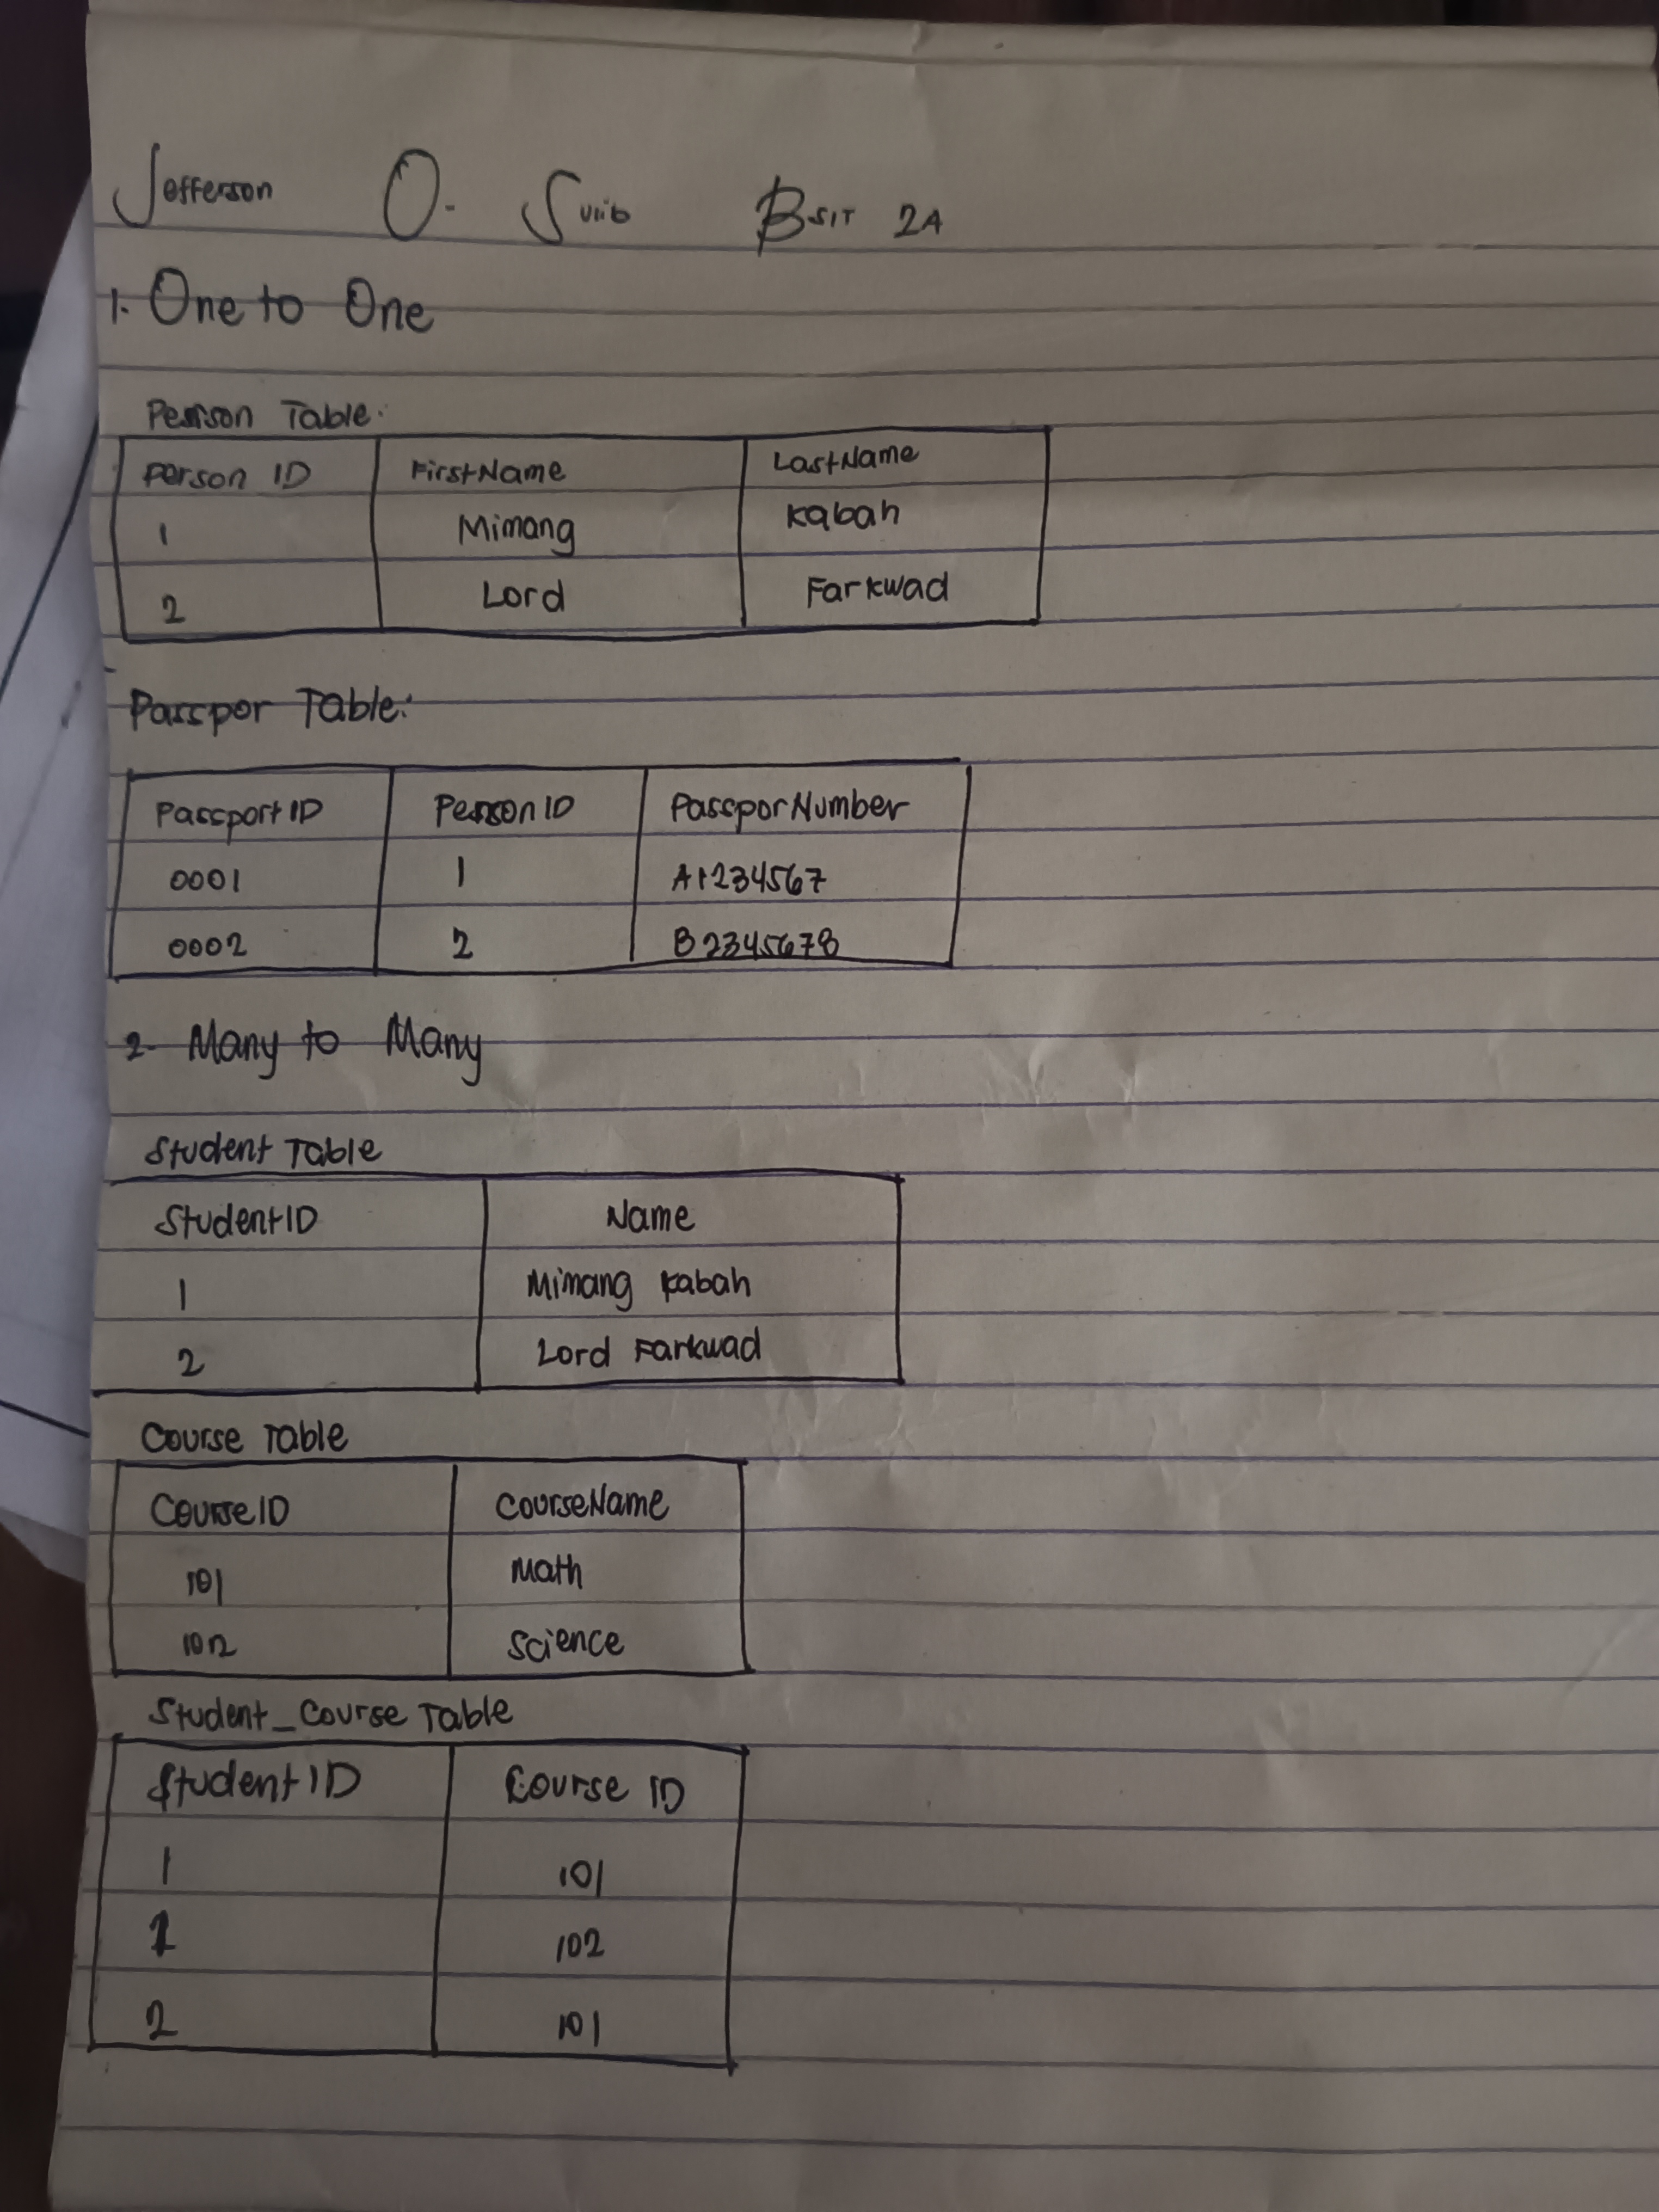 Jefferson O. Suiib BSIT 2A
1. One to One
Person Table:
Person ID FirstName LastName
1 Mimang Kabah
2 Lord Farkwad
Passpor Table:
PassportID PersonID PassporNumber
0001 1 A1234567
0002 2 B2345678
2- Many to Many
Student Table
StudentID Name
1 Mimang Kabah
2 Lord Farkwad
Course Table
CourseID CourseName
101 Math
102 Science
Student_Course Table
StudentID Course ID
1 101
1 102
2 101